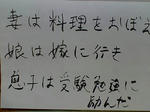 妻は料理をおぼえ
娘は嫁に行き
息子は受験勉強に
励んだ